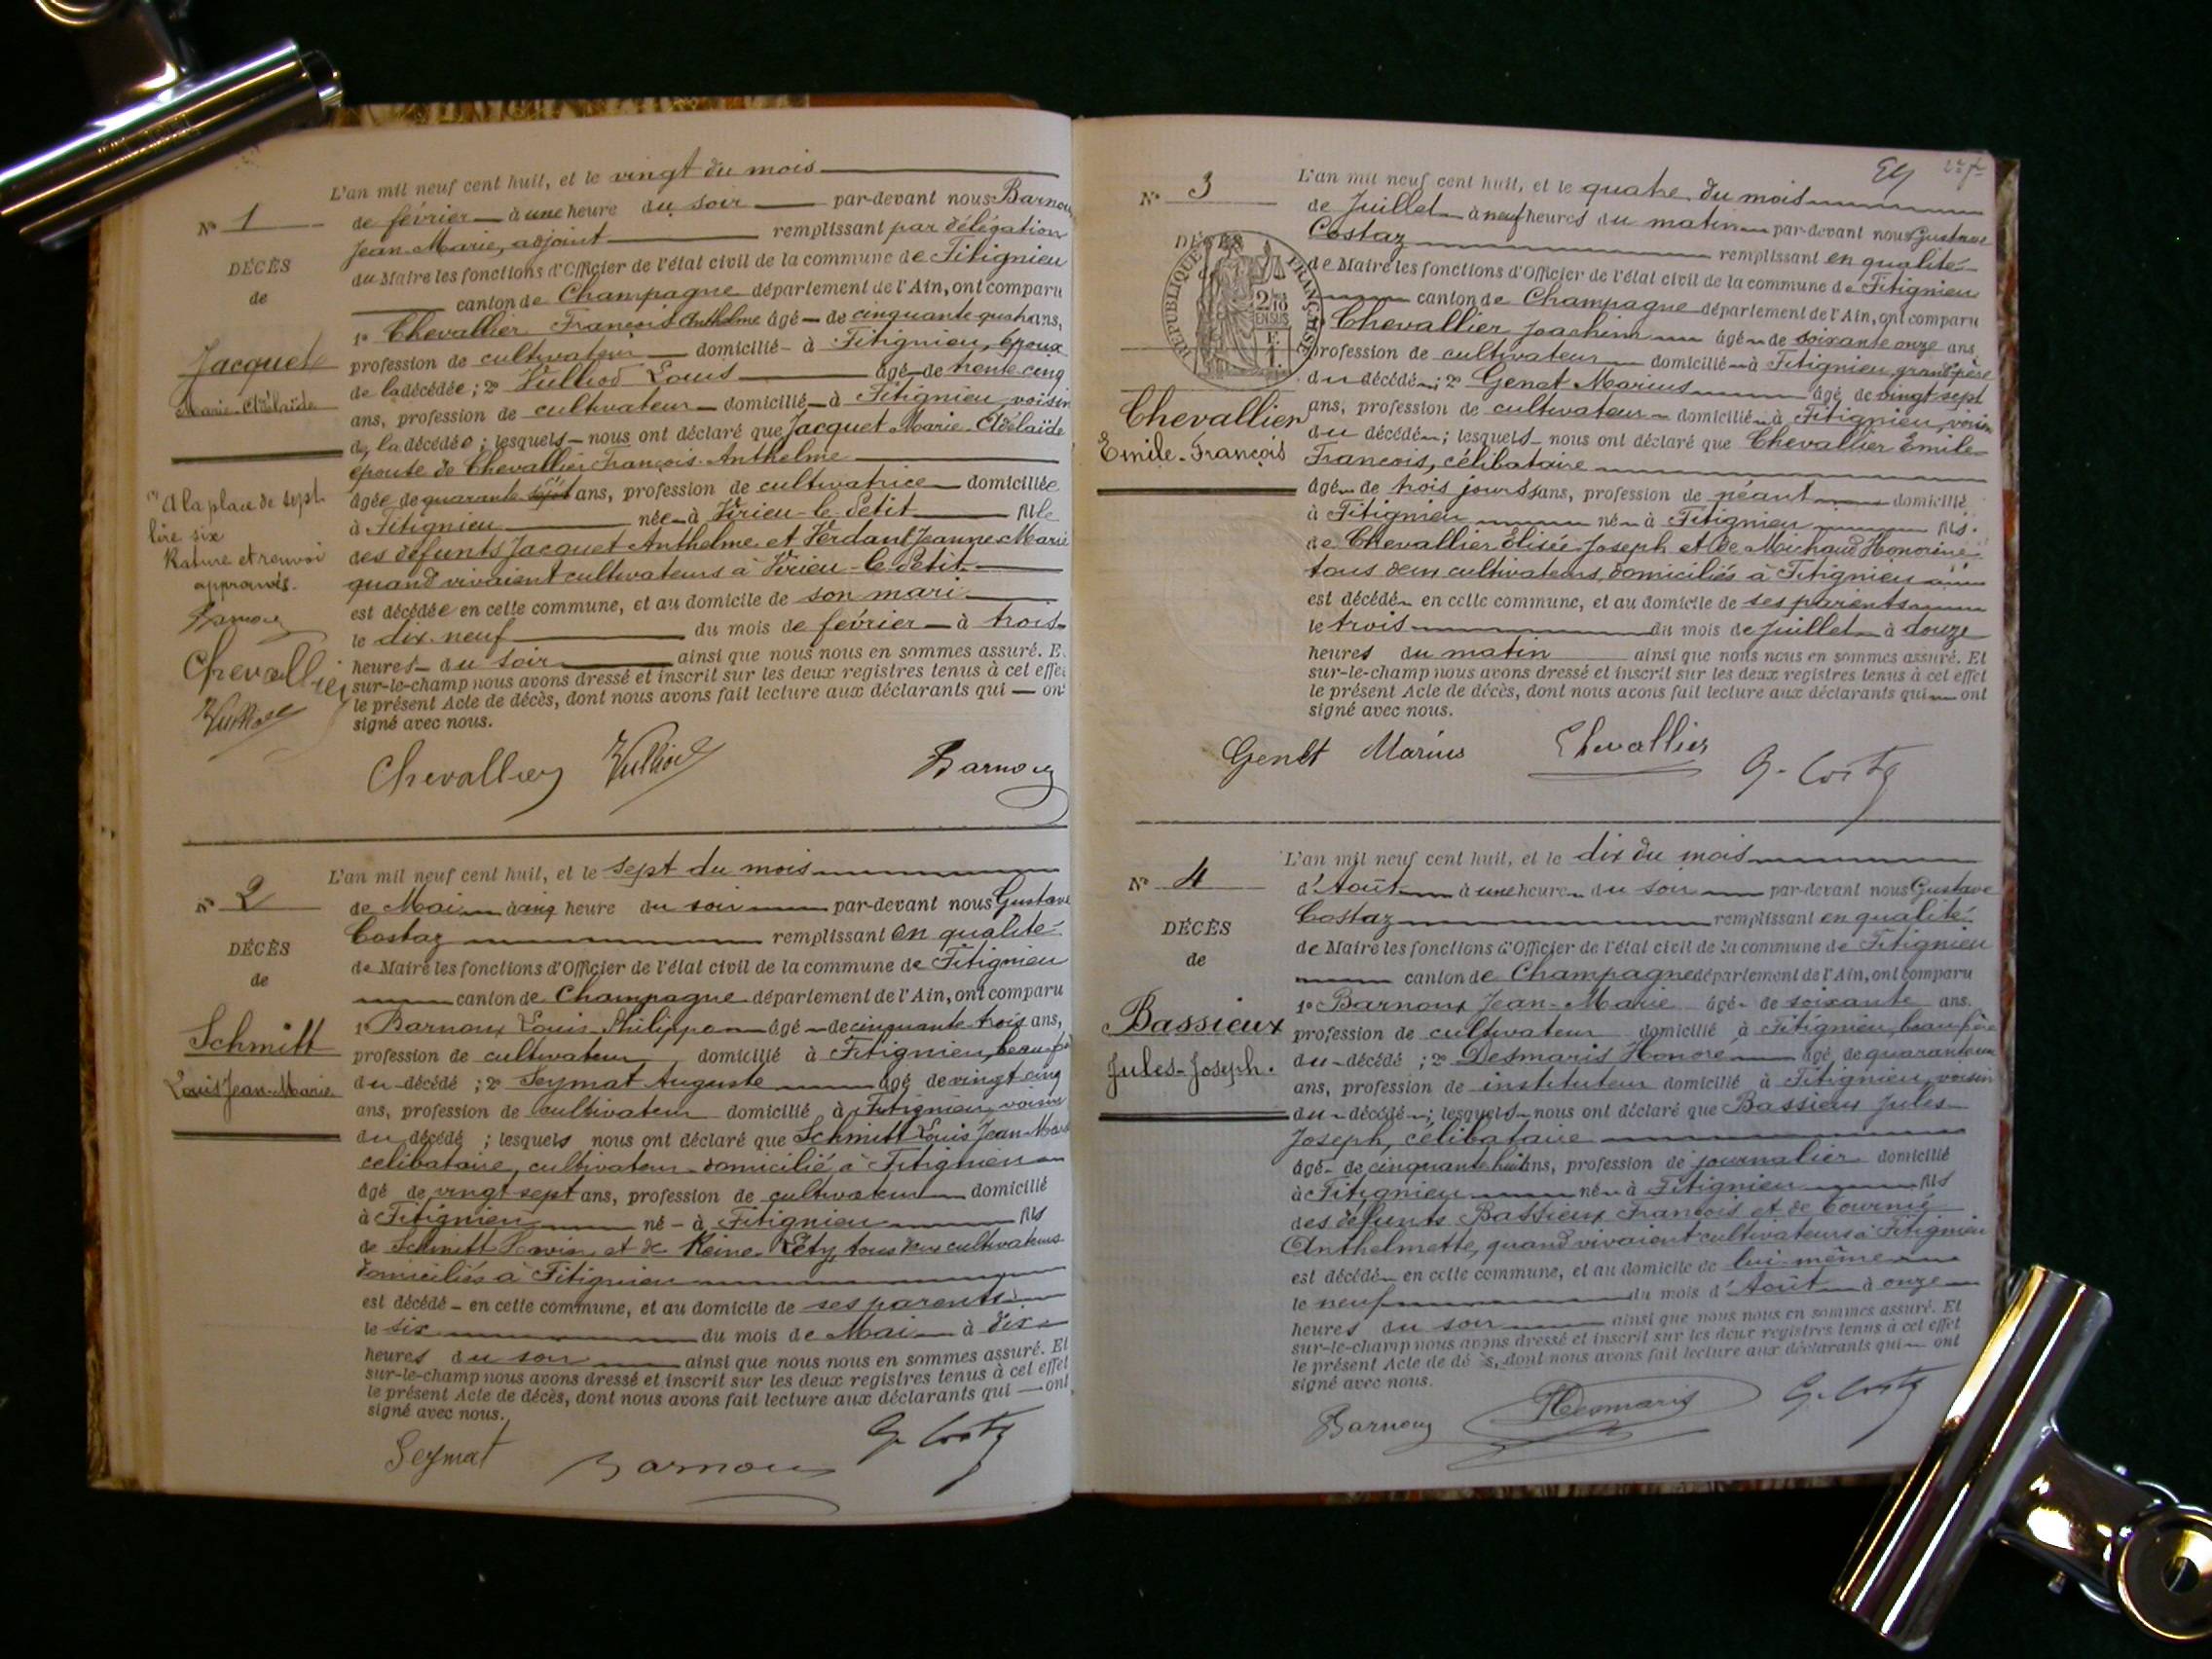 L'an mil neuf cent huit, et le vingt du mois
N° 1
de février à une heure du soir par-devant nous Barnoux
Jean-Marie, adjoint remplissant par délégation
DÉCÈS
du Maire les fonctions d'Officier de l'état civil de la commune de Fitignieu
de
canton de Champagne département de l'Ain, ont comparu
1° Chevallier François Anthelme âgé de cinquante quatre ans,
Jacquet
profession de cultivateur domicilié à Fitignieu, époux
de la décédée ; 2° Vulliod Louis âgé de trente cinq
Marie-Adélaïde
ans, profession de cultivateur domicilié à Fitignieu, voisin
de la décédée ; lesquels nous ont déclaré que Jacquet Marie-Adélaïde
épouse de Chevallier François-Anthelme
(1) A la place de sept
âgée de quarante sept ans, profession de cultivatrice domiciliée
lire six
à Fitignieu née à Virieu-le-Petit fille
Rature et renvoi
des défunts Jacquet Anthelme et Verdant Jeanne Marie
approuvés.
quand vivaient cultivateurs à Virieu-le-Petit
est décédée en cette commune, et au domicile de son mari
Barnoux
le dix neuf du mois de février à trois
Chevallier
heures du soir ainsi que nous nous en sommes assuré. E
sur-le-champ nous avons dressé et inscrit sur les deux registres tenus à cet effet
Vulliod
le présent Acte de décès, dont nous avons fait lecture aux déclarants qui ont
signé avec nous.
Chevallier Vulliod Barnoux
L'an mil neuf cent huit, et le sept du mois
N° 2
de Mai à cinq heure du soir par-devant nous Gustave
Costaz remplissant en qualité
DÉCÈS
de Maire les fonctions d'Officier de l'état civil de la commune de Fitignieu
de
canton de Champagne département de l'Ain, ont comparu
Schmitt
1° Barnoux Louis-Philippe âgé de cinquante trois ans,
profession de cultivateur domicilié à Fitignieu, beau-frè
Louis Jean-Marie
du décédé ; 2° Seymat Auguste âgé de vingt cinq
ans, profession de cultivateur domicilié à Fitignieu, voisin
du décédé ; lesquels nous ont déclaré que Schmitt Louis Jean-Marie
célibataire, cultivateur domicilié à Fitignieu
âgé de vingt sept ans, profession de cultivateur domicilié
à Fitignieu né à Fitignieu fils
de Schmitt et de Reine Réty, tous deux cultivateurs
domiciliés à Fitignieu
est décédé en cette commune, et au domicile de ses parents
le six du mois de Mai à dix
heures du soir ainsi que nous nous en sommes assuré. Et
sur-le-champ nous avons dressé et inscrit sur les deux registres tenus à cet effet
le présent Acte de décès, dont nous avons fait lecture aux déclarants qui ont
signé avec nous.
Seymat Barnoux G. Costaz
L'an mil neuf cent huit, et le quatre du mois
N° 3
de Juillet à neuf heures du matin par-devant nous Gustave
Costaz remplissant en qualité
DÉCÈS
RÉPUBLIQUE FRANÇAISE
de Maire les fonctions d'Officier de l'état civil de la commune de Fitignieu
canton de Champagne département de l'Ain, ont comparu
2/10 EN SUS
1° Chevallier Joachim âgé de soixante onze ans
profession de cultivateur domicilié à Fitignieu, grand'père
du décédé ; 2° Genet Marius âgé de vingt sept
Chevallier
ans, profession de cultivateur domicilié à Fitignieu, voisin
du décédé ; lesquels nous ont déclaré que Chevallier Emile
Emile-François
François, célibataire
âgé de trois jours ans, profession de néant domicilié
à Fitignieu né à Fitignieu fils
de Chevallier Élisée Joseph et de Michaud Honorine
tous deux cultivateurs, domiciliés à Fitignieu
est décédé en cette commune, et au domicile de ses parents
le trois du mois de Juillet à douze
heures du matin ainsi que nous nous en sommes assuré. Et
sur-le-champ nous avons dressé et inscrit sur les deux registres tenus à cet effet
le présent Acte de décès, dont nous avons fait lecture aux déclarants qui ont
signé avec nous.
Genet Marius Chevallier G. Costaz
L'an mil neuf cent huit, et le dix du mois
N° 4
d'Août à une heure du soir par-devant nous Gustave
Costaz remplissant en qualité
DÉCÈS
de Maire les fonctions d'Officier de l'état civil de la commune de Fitignieu
de
canton de Champagne département de l'Ain, ont comparu
Bassieux
1° Barnoux Jean-Marie âgé de soixante ans.
profession de cultivateur domicilié à Fitignieu, beau-frère
Jules-Joseph.
du décédé ; 2° Desmaris Honoré âgé de quarante un
ans, profession de instituteur domicilié à Fitignieu, voisin
du décédé ; lesquels nous ont déclaré que Bassieux Jules
Joseph, célibataire
âgé de cinquante huit ans, profession de journalier domicilié
à Fitignieu né à Fitignieu fils
des défunts Bassieux François et de Tournié
Anthelmette, quand vivaient cultivateurs à Fitignieu
est décédé en cette commune, et au domicile de lui-même
le neuf du mois d'Août à onze
heures du soir ainsi que nous nous en sommes assuré. Et
sur-le-champ nous avons dressé et inscrit sur les deux registres tenus à cet effet
le présent Acte de décès, dont nous avons fait lecture aux déclarants qui ont
signé avec nous.
Barnoux HDesmaris G. Costaz